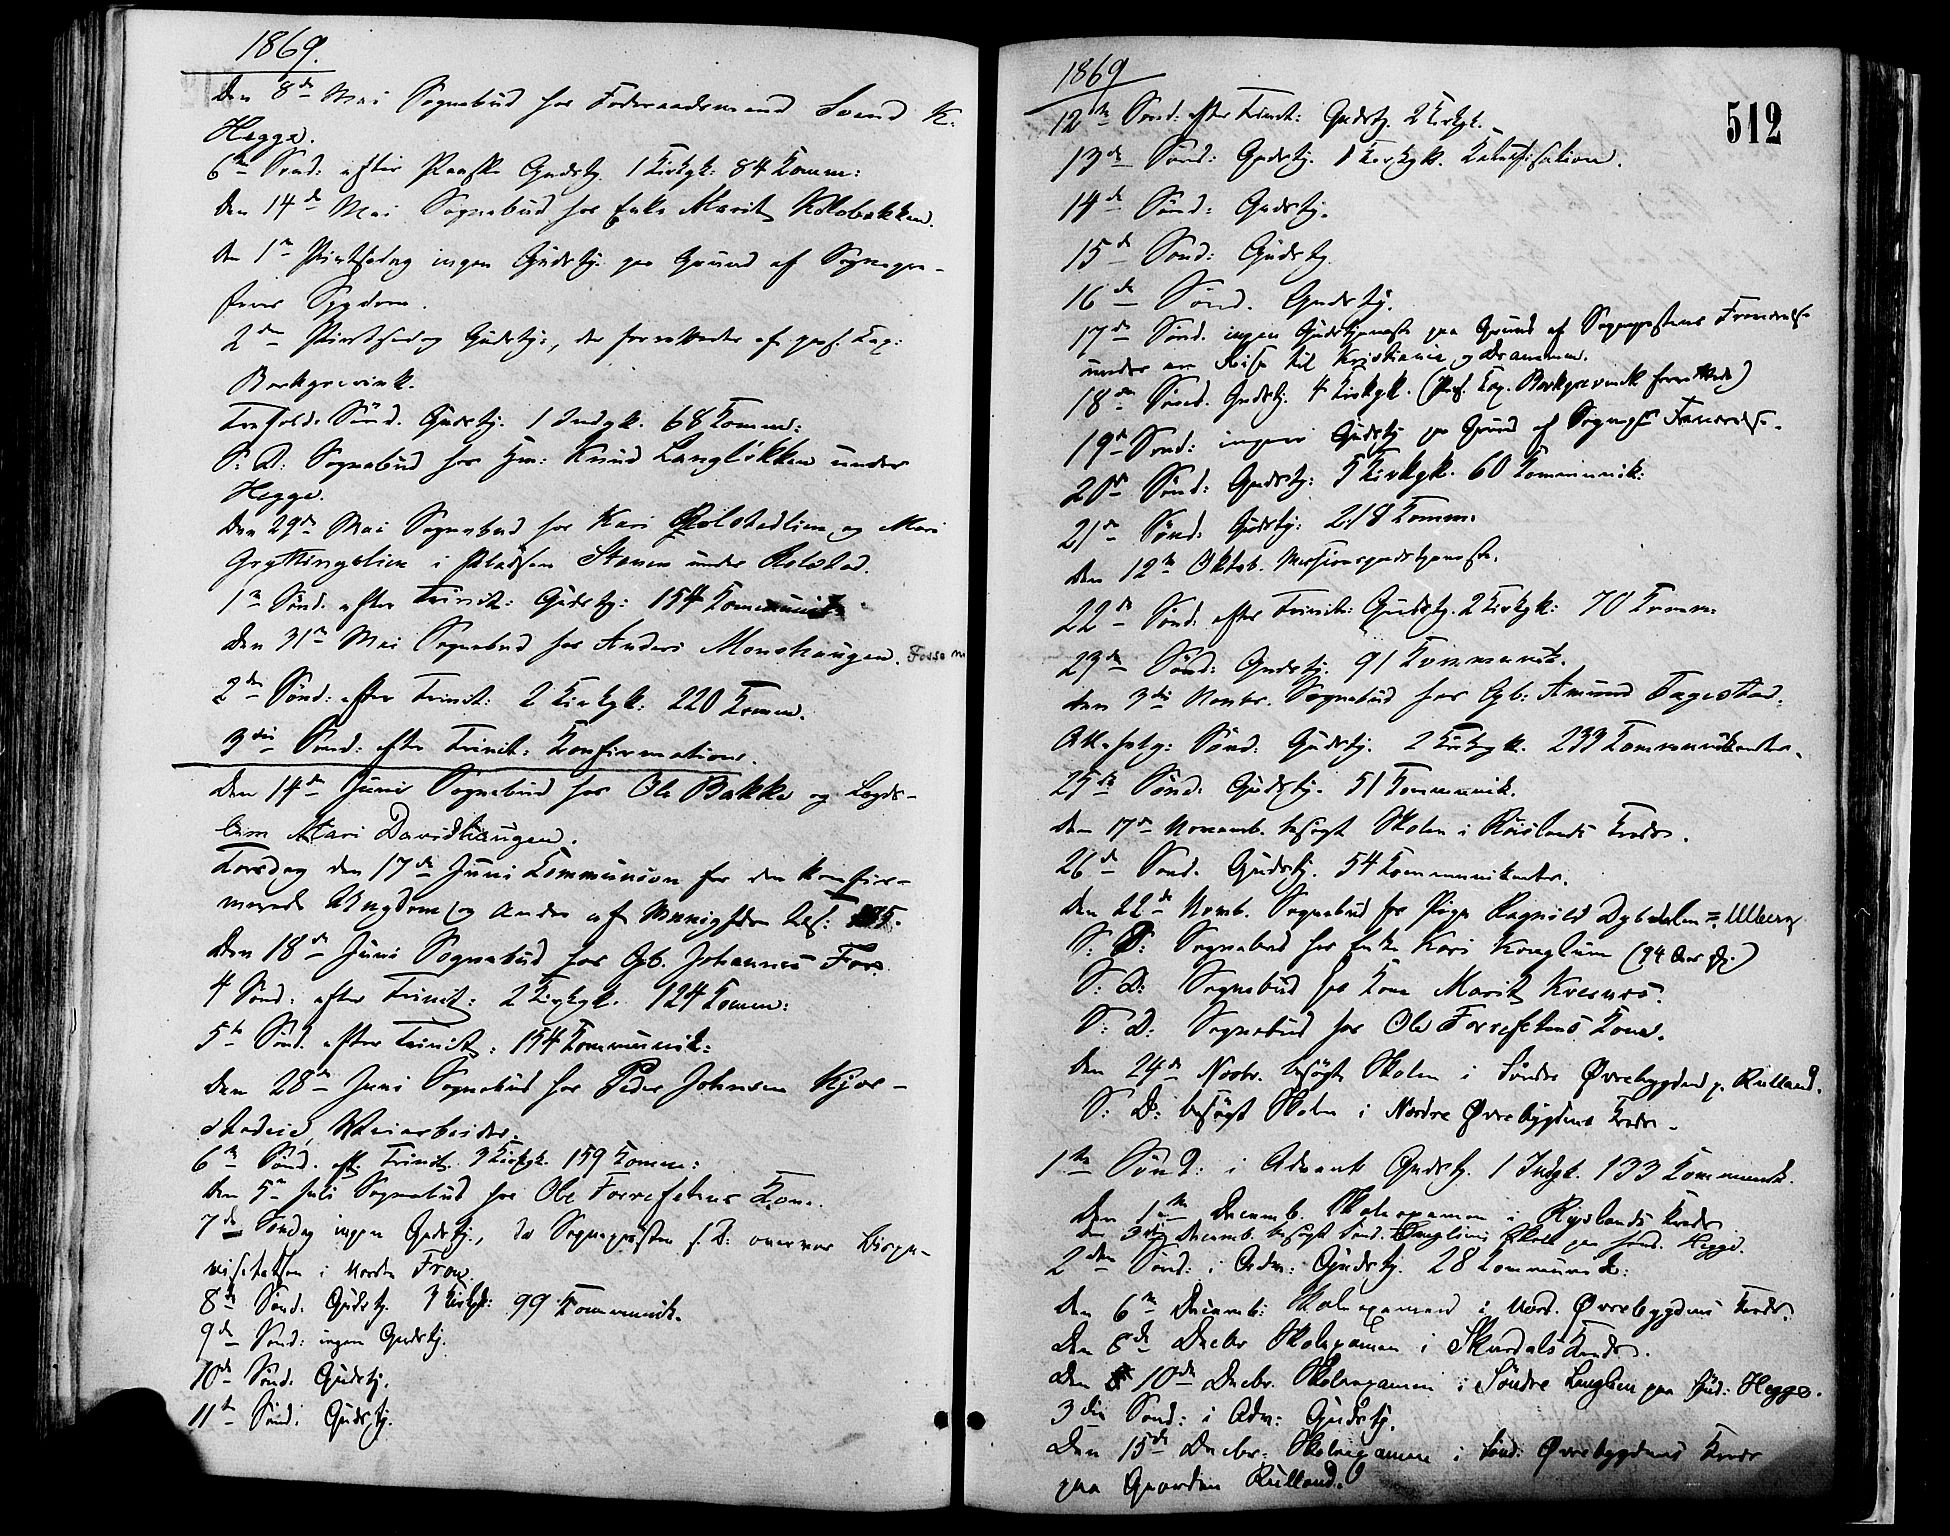 1869.
Den 8de Mai Sognebud hos Foderaadsmand Svend K.
Hegge.
6te Sønd: efter Paaske Gudstj. 1 Kirkgk: 84 Komm:
Den 14de Mai Sognebud hos Enke Marit Kolobakken.
den 1ste Pintsedag ingen Gudstj: paa Grund af Sognepræ-
stens Sygdom.
2den Pintsedag Gudstj:, der forrettedes af pers. Kap:
Borkgrevink.
Trefold. Sønd. Gudstj. 1 Indgk. 68 Komm:
S: D: Sognebud hos Hm: Knud Langløkken under
Hegge.
Den 29de Mai Sognebud hos Kari Rolstadlien og Mari
Gryttingslien i Pladsen Stenen under Rolstad.
1ste Sønd. efter Trinit: Gudstj: 154 Kommunik:
Den 31te Mai Sognebud hos Anders Monshaugen. Fosse
2den Sønd: efter Trinit: 2 Kirkgk. 220 Komm.
3die Sønd: efter Trinit: Konfirmation.
Den 14de Juni Sognebud hos Ole Bakke og Lægds-
lem Mari Davidhaugen.
Torsdag den 17de Juni Kommunion for den konfir-
merede Ungdom og Andre af Menigheden
Den 18de Juni Sognebud hos Gb. Johannes For.
4 Sønd. efter Trinit: 2 Kirkgk. 124 Komm:
5te Sønd. efter Trinit: 154 Kommunik:
Den 28de Juni Sognebud hos Peder Johnsen Kjør-
stadeie, Veiarbeider.
6te Sønd. eft. Trinit. 3 Kirkgk. 159 Komm:
Den 5te Juli Sognebud hos Ole Forrestens Kone.
7de Søndag ingen Gudstj., da Sognepræsten s. D: overvar Bispe-
visitatsen i Nordre Fron.
8de Sønd. Gudstj. 3 Kirkgk: 99 Kommunik.
9de Sønd: ingen Gudstj.
10de Sønd: Gudstj.
11te Sønd: Gudstj.
1869
512
12te Sønd: efter Trinit: Gudstj. 2 Kirkgk.
13de Sønd: Gudstj. 1 Kirkgk. Katekisation.
14de Sønd: Gudstj.
15de Sønd: Gudstj.
16de Sønd. Gudstj.
17de Sønd. ingen Gudstjeneste paa Grund af Sognepræstens Fraværelse
under en Reise til Kristiania og Drammen.
18de Sønd. Gudstj. 4 Kirkgk. (Pers. Kap. Borkgrevink forrettede)
19de Sønd: ingen Gudstj paa Grund af Sognepr Fraværelse.
20de Sønd: Gudstj: 5 Kirkgk. 60 Kommunik:
21de Sønd: Gudstj: 218 Komm:
den 12te Oktob. Missionsgudstjeneste.
22de Sønd. efter Trinit: Gudstj. 2 Kirkgk: 70 Komm:
23de Sønd: Gudstj. 91 Kommunik.
den 3die Novbr. Sognebud hos Gb: Amund Fagestad.
Allehelg: Sønd. Gudstj. 2 Kirkgk. 233 Kommunikanter.
25de Sønd. Gudstj. 51 Kommunik.
Den 17de Novemb. besøgt Skolen i Røislands Kreds.
26de Sønd. Gudstj. 54 Kommunikanter.
Den 22de Novemb. Sognebud hos Pige Ragnild Dybdalen = Ulberg
S: D: Sognebud hos Enke Kari Kongslien (94 Aar gl.)
S: D: Sognebud hos Kone Marit Kværnes.
S: D: Sognebud hos Ole Forrestens Kone.
Den 24de Novbr. besøgt Skolen i Søndre Øvrebygden p. Rulland.
S: D: besøgt Skolen i Nordre Øvrebygdens Kreds.
1ste Sønd: i Advent Gudstj. 1 Indgk. 133 Kommunik.
Den 1ste Decemb. Skoleexamen i Røislands Kreds
Den 3die Decemb. besøgt Sønd. Skole paa Sønd. Hegge.
2den Sønd: i Adv: Gudstj. 28 Kommunik:
Den 6te Decemb: Skoleexamen i Nord. Øvrebygdens Kreds.
Den 8de Decbr Skoleexamen i Skurdals Kreds.
Den 10de Decbr. Skoleexamen i Søndre Langlien paa Sønd: Hegge.
3die Sønd: i Adv: Gudstj.
Den 15de Decbr. Skoleexamen i Sønd: Øvrebygdens Kreds
paa Gaarden Rulland.